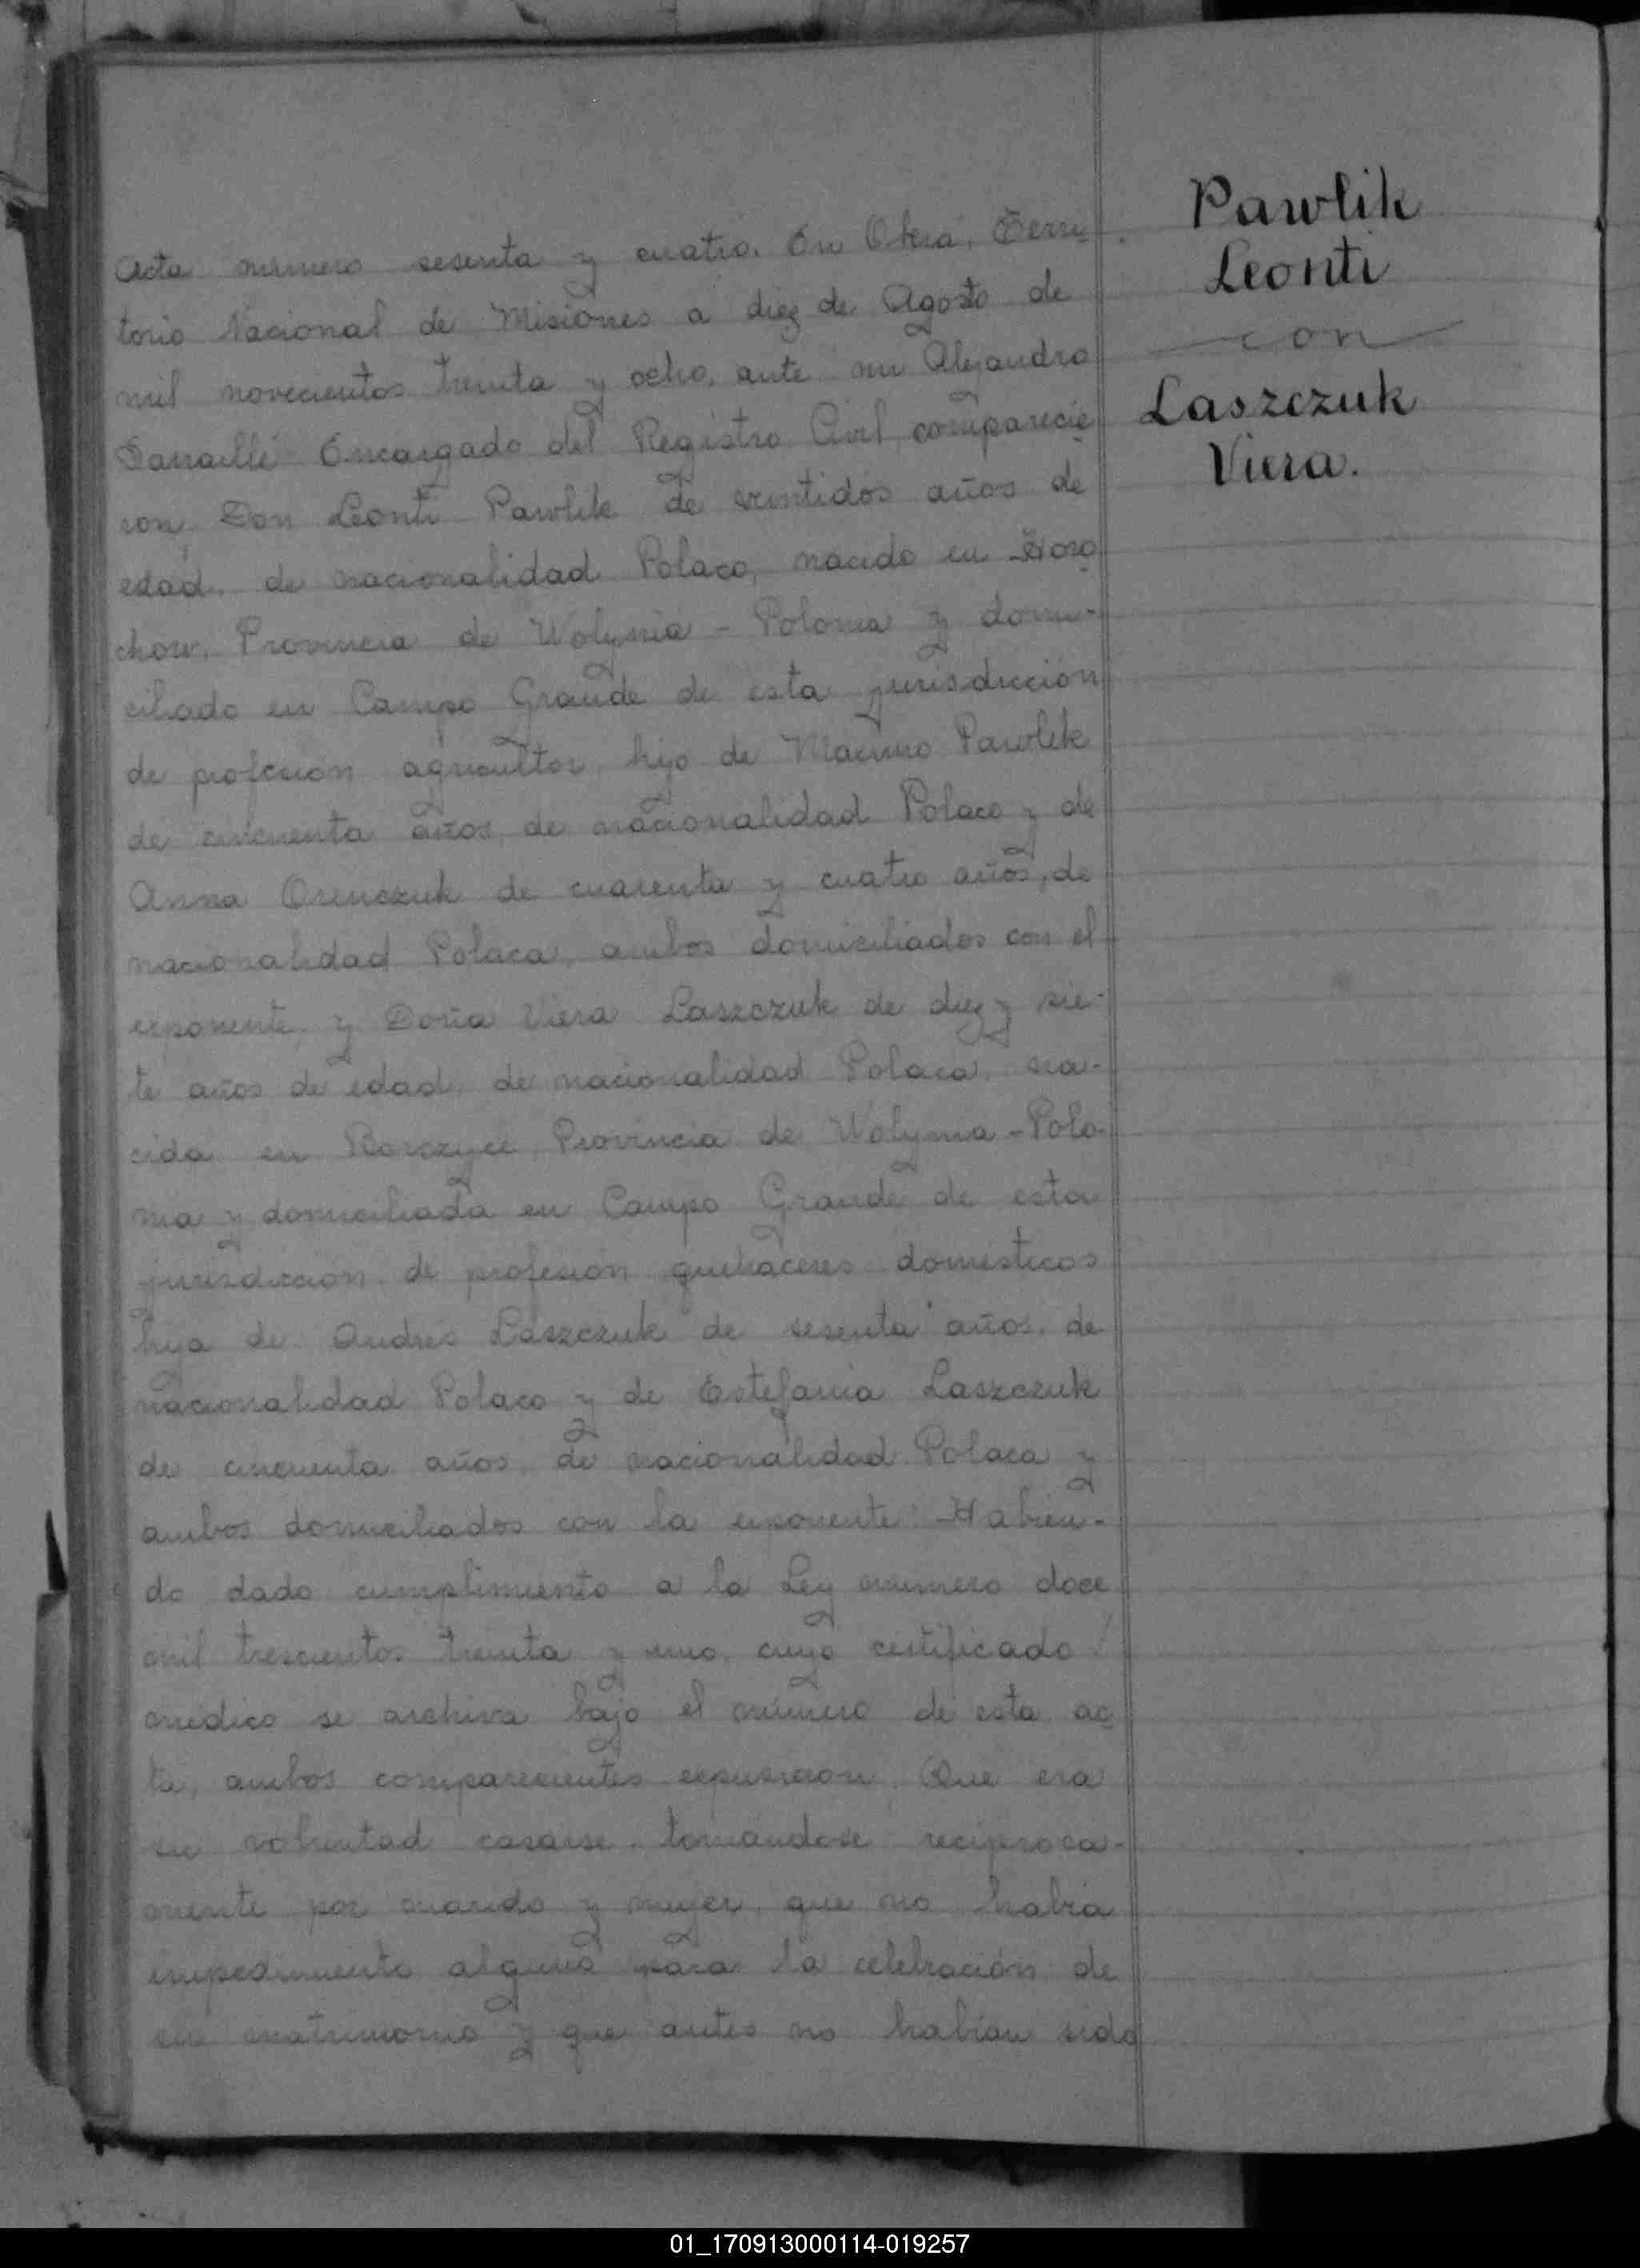 Pawlik
Leonti
con
Laszczuk
Viera.
Acta número sesenta y cuatro. En Oberá, Terri-
torio Nacional de Misiones a diez de Agosto de
mil novecientos treinta y ocho, ante mi Alejandro
Encargado del Registro Civil comparecie
ron Don Leonti Pawlik de veintidós años de
edad, de nacionalidad Polaco, nacido en Horo
chow, Provincia de Wolynia - Polonia y domi-
ciliado en Campo Grande de esta jurisdicción
de profesión agricultor, hijo de Maximo Pawlik
de cincuenta años, de nacionalidad Polaco y de
Anna de cuarenta y cuatro años, de
nacionalidad Polaca, ambos domiciliados con el
exponente, y Doña Viera Laszczuk de diez y sie-
te años de edad, de nacionalidad Polaca, na-
cida en Provincia de Wolynia - Polo-
nia y domiciliada en Campo Grande de esta
jurisdicción de profesión quehaceres domésticos
hija de Andrés Laszczuk de sesenta años, de
nacionalidad Polaco y de Estefania Laszczuk
de cincuenta años, de nacionalidad Polaca y
ambos domiciliados con la exponente. Habien-
do dado cumplimiento a la Ley número doce
mil trescientos treinta y uno, cuyo certificado
médico se archiva bajo el número de esta ac
ta, ambos comparecientes expusieron: Que era
su voluntad casarse tomándose recíproca-
mente por marido y mujer, que no había
impedimento alguno para la celebración de
su matrimonio y que antes no habían sido
01_170913000114-019257